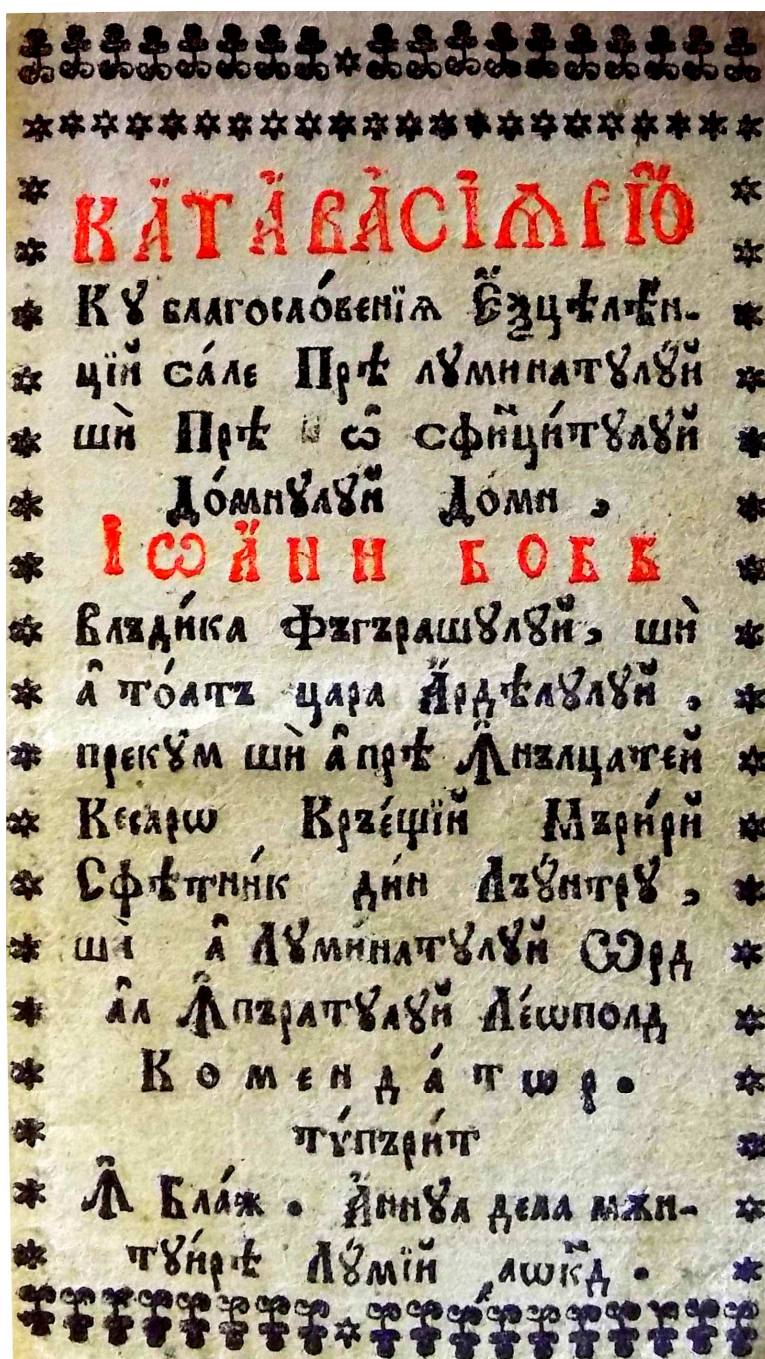 КА̓ТА̓ВА̓СІѦРІЮ̓
Кꙋ благослове́нїѧ Е̓ꙁцѣле́н-
цїй са́ле Прѣ лꙋминатꙋлꙋй
шѝ Прѣ ѡ̑ сфинци́тꙋлꙋй
До́мнꙋлꙋй До́мн ,
ІѠА́НН БОББ
Влъди́ка Фъгърашꙋлꙋй, шѝ
а̑ то́атъ цара А̓рдѣлꙋлꙋй ,
прекꙋ́м шѝ а̑ прѣ Ꙟ̑нълцатей
Кесарѡ Кръе́щїй Мъри́рй
Сфѣтни́к ди́н Лъꙋ́нтрꙋ ,
шѝ а̑ Лꙋми́натꙋлꙋй Ѡрд
а̑л Ꙟ̑пъратꙋлꙋй Ле́ѡполд
Коменда́тѡр.
тѵ́пъри́т
Ꙟ̑ Бла́ж . А́ннꙋл дела мѫн-
тꙋи́рѣ Лꙋ́мїй